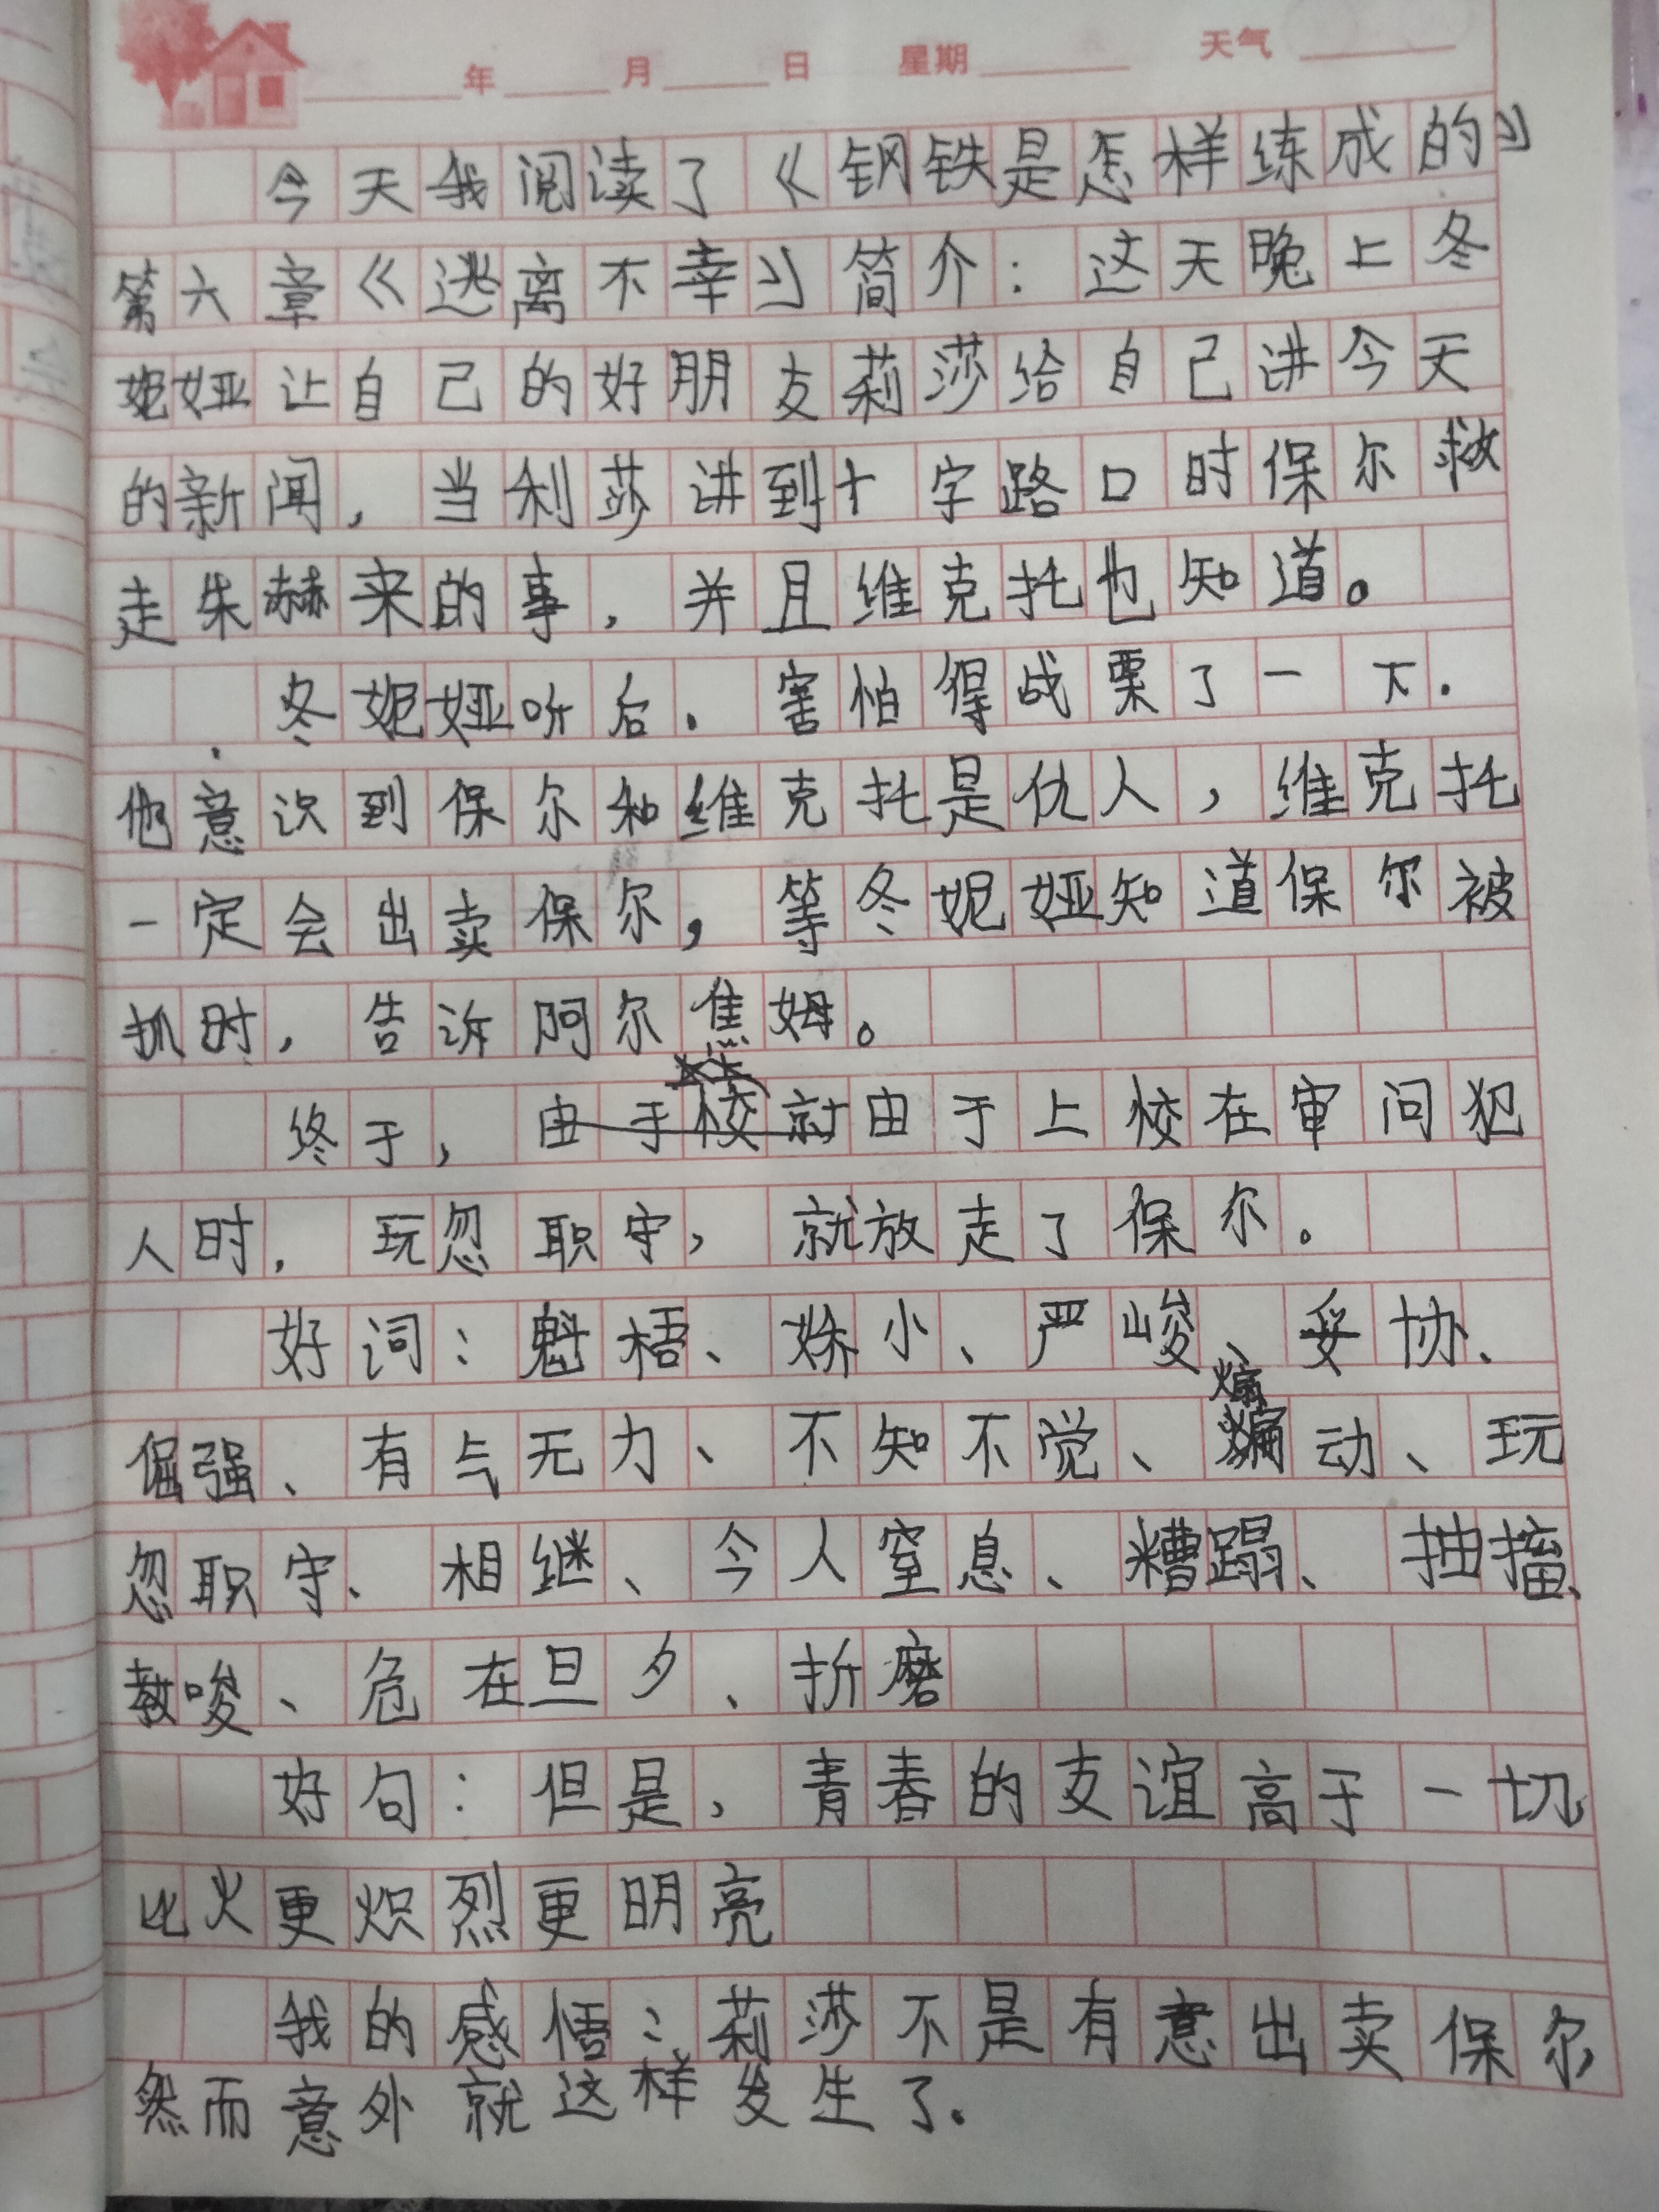 年 月 日 星期 天气
今天我阅读了《钢铁是怎样练成的》
第六章《逃离不幸》简介：这天晚上冬
妮娅让自己的好朋友莉莎给自己讲今天
的新闻，当利莎讲到十字路口时保尔救
走朱赫来的事，并且维克托也知道。
冬妮娅听后，害怕得战栗了一下．
他意识到保尔和维克托是仇人，维克托
一定会出卖保尔，等冬妮娅知道保尔被
抓时，告诉阿尔焦姆。
终于，由于校就由于上校在审问犯
人时，玩忽职守，就放走了保尔。
好词：魁梧、矫小、严峻、妥协、
倔强、有气无力、不知不觉、煽动、玩
忽职守、相继、令人窒息、糟蹋、抽搐、
教唆、危在旦夕、折磨
好句：但是，青春的友谊高于一切
比火更炽烈更明亮
我的感悟：莉莎不是有意出卖保尔
然而意外就这样发生了．